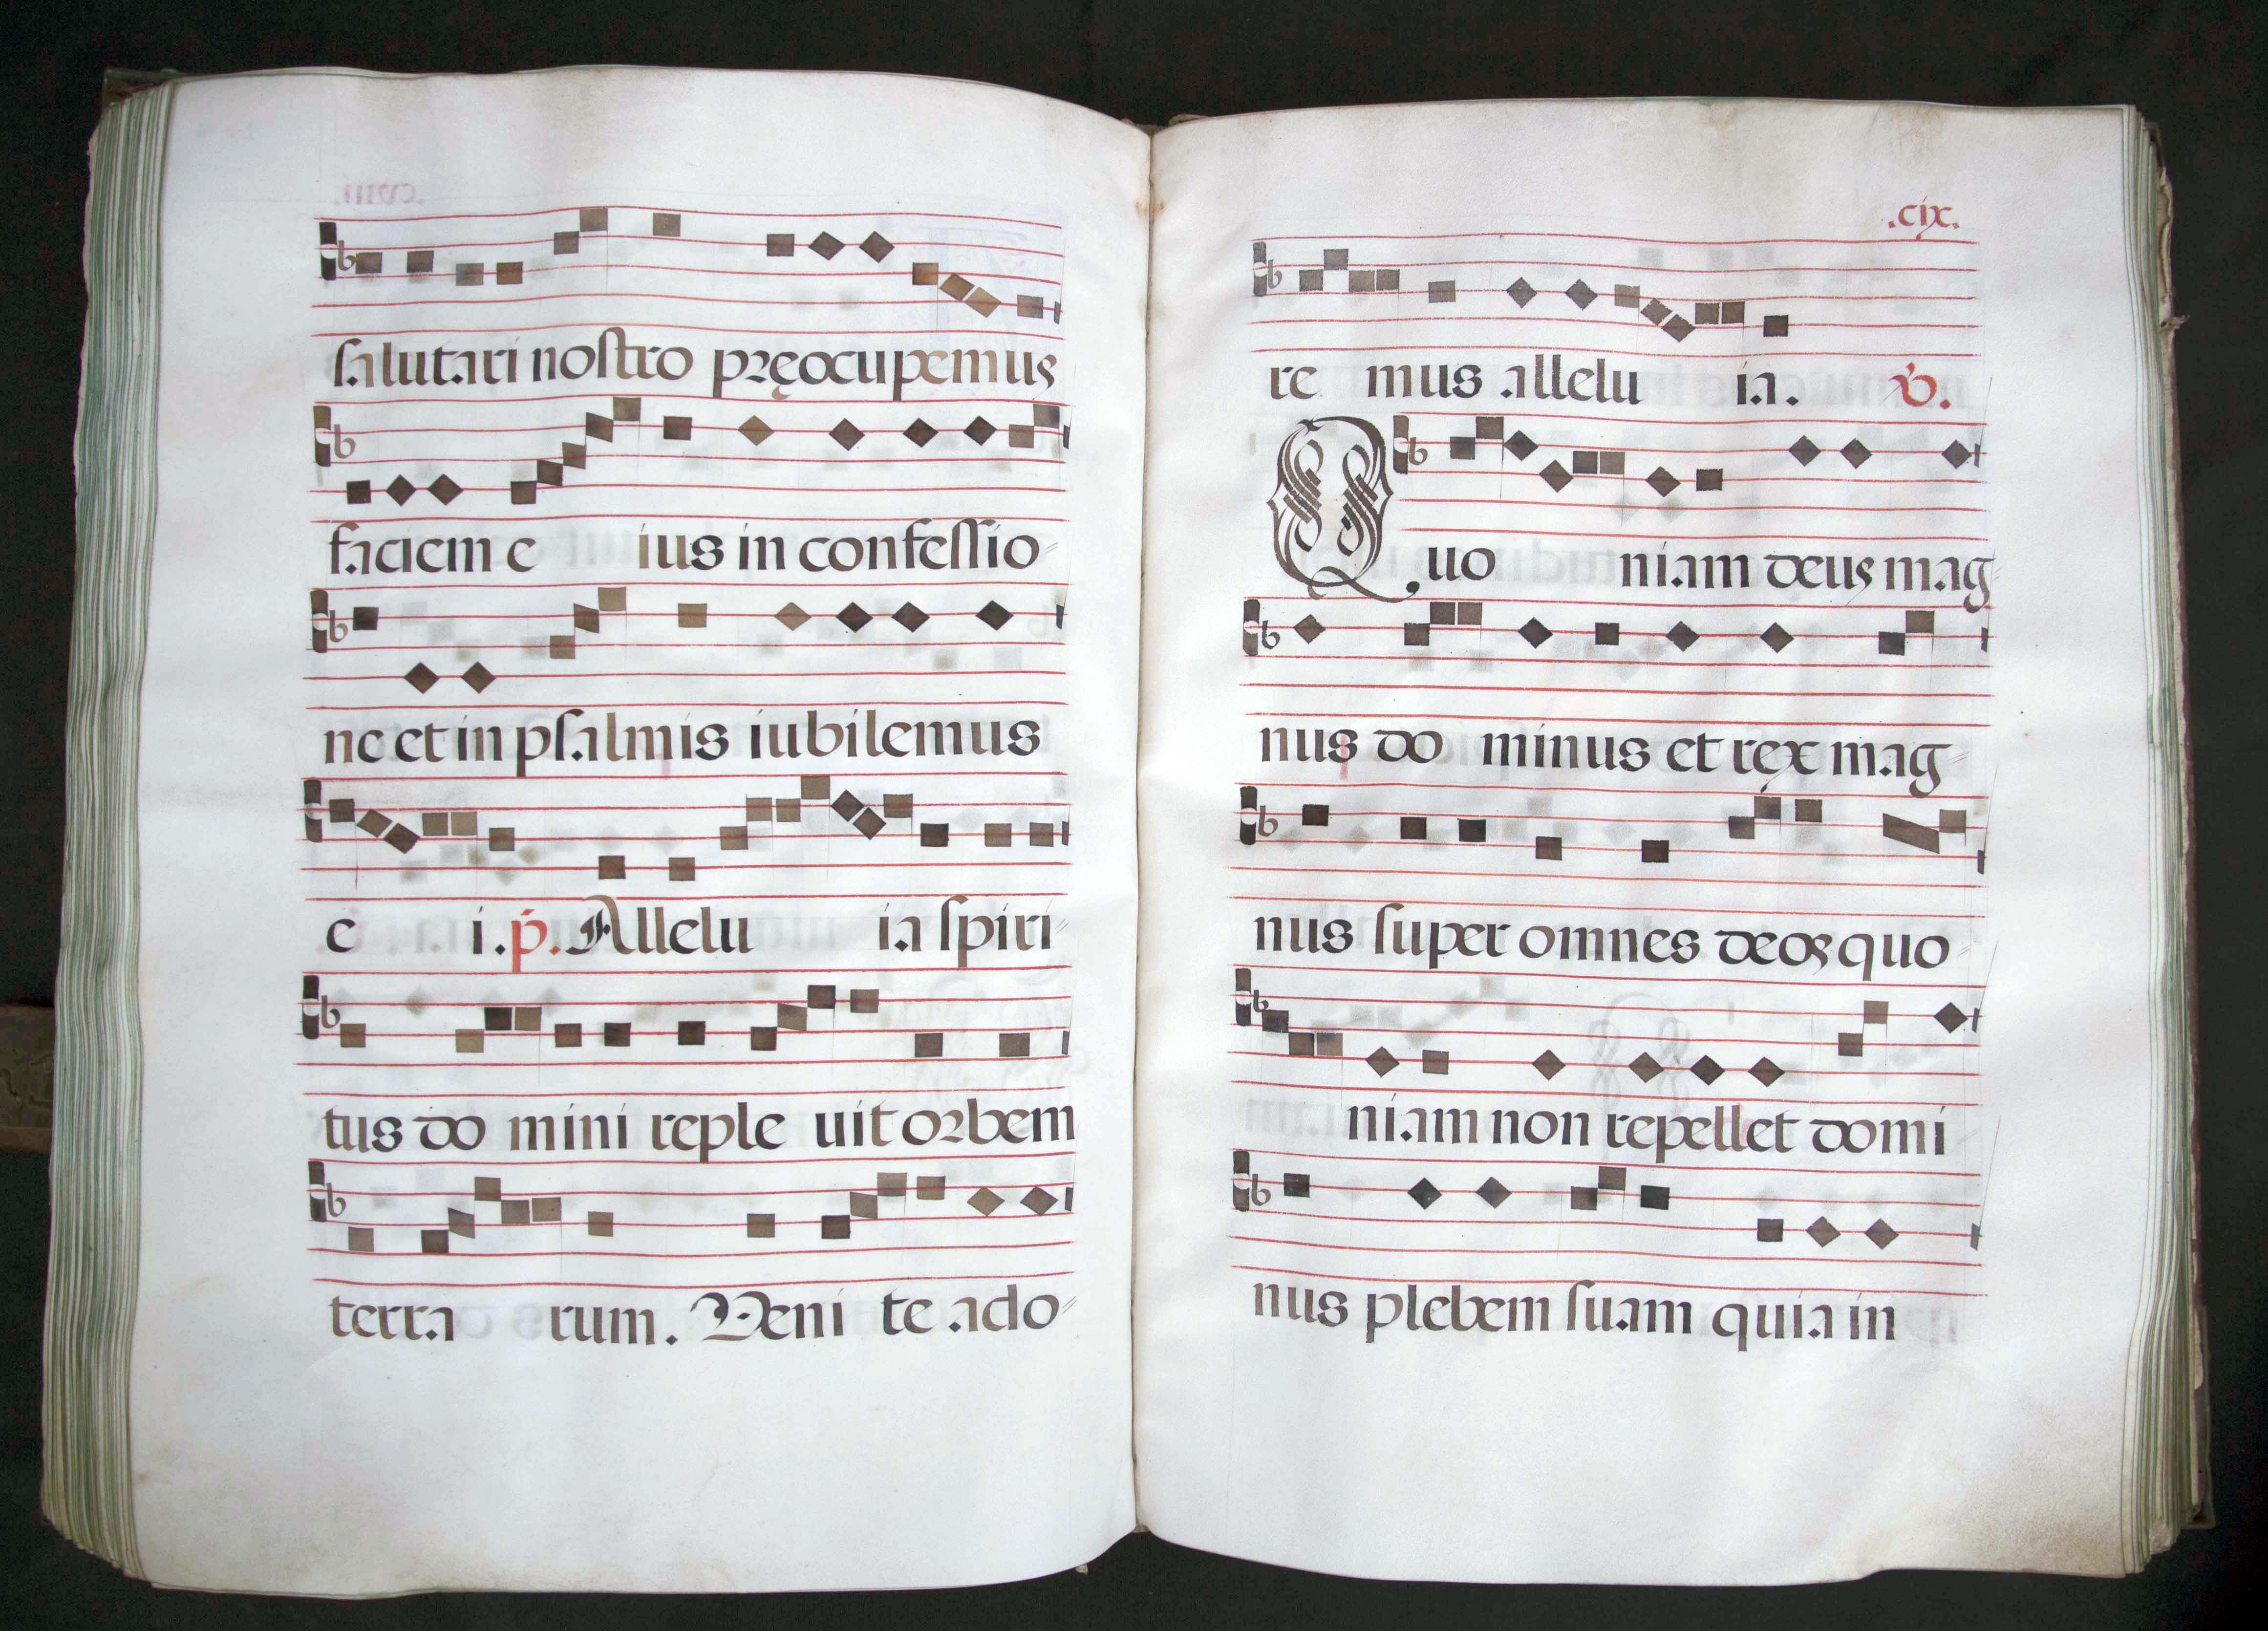 salutari nostro pręocupemus
faciem e ius in confessio
ne et in psalmis iubilemus
e i. p. Allelu ia spiri
tus do mini reple uit orbem
terra rum. Veni te ado
.cix.
re mus allelu ia. V.
Quo niam deus mag
nus do minus et rex mag
nus super omnes deos quo
niam non repellet domi
nus plebem suam quia in